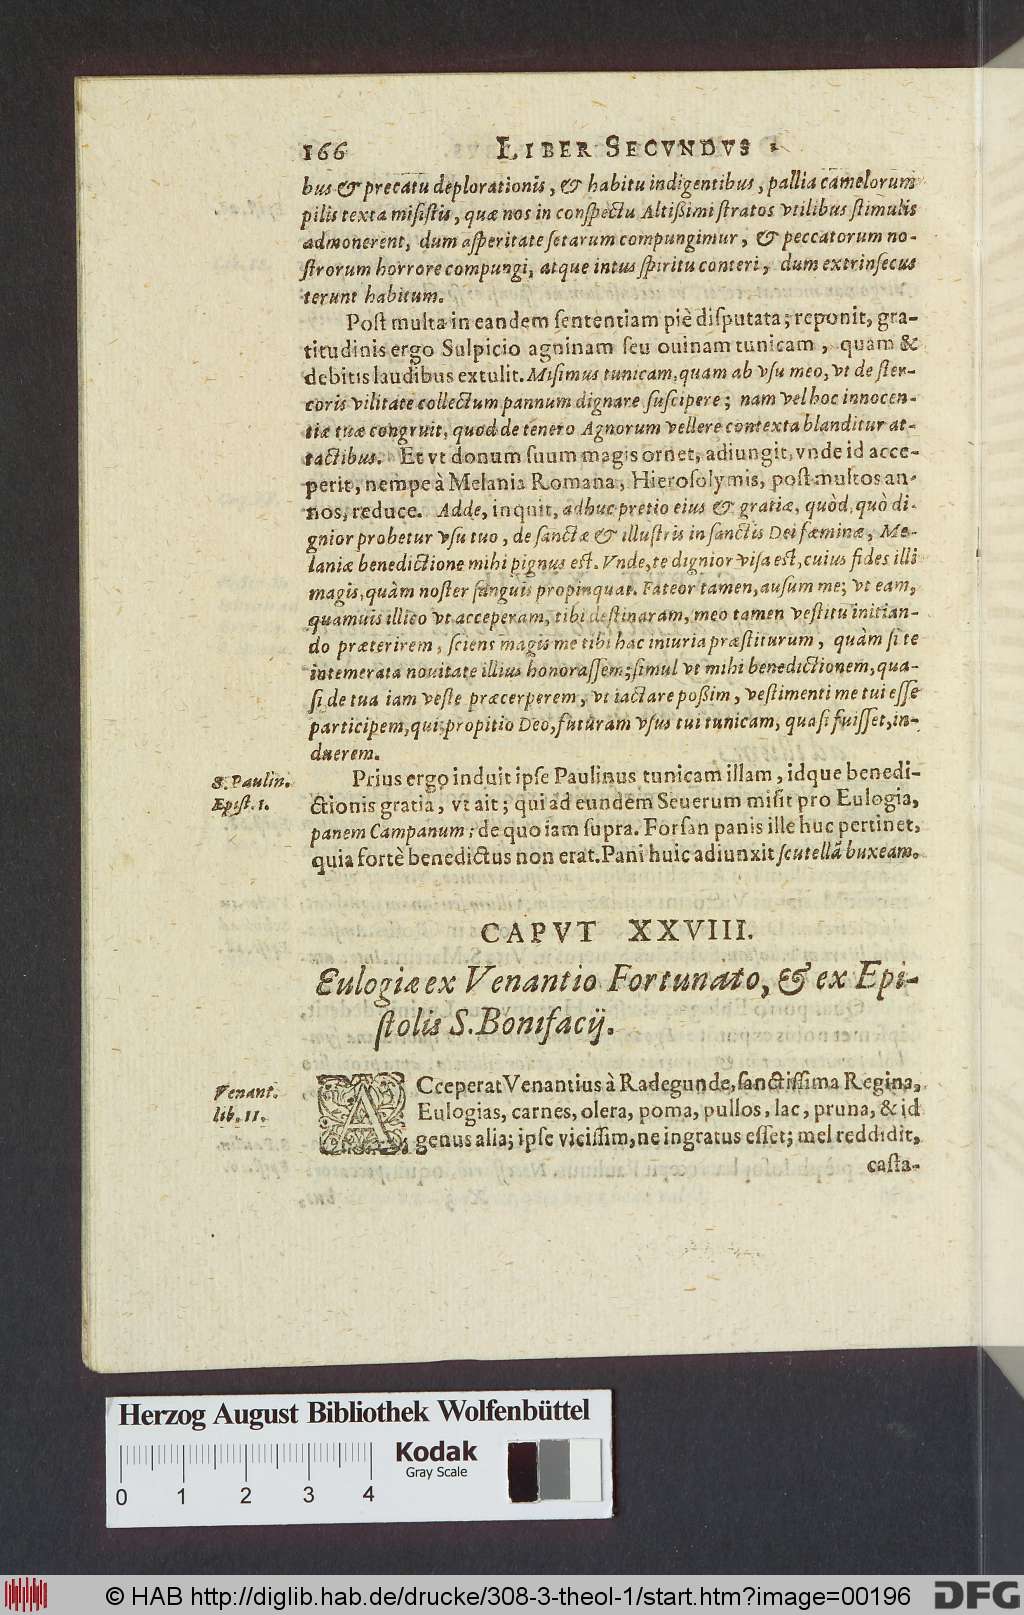 166 LIBER SECVNDVS
bus & precatu deplorationis, & habitu indigentibus, pallia camelorum
pilis texta misistis, quæ nos in conspectu Altißimi stratos vtilibus stimulis
admonerent, dum asperitate setarum compungimur, & peccatorum no-
strorum horrore compungi, atque intus spiritu conteri, dum extrinsecus
terunt habitum.
Post multa in eandem sententiam piè disputata; reponit, gra-
titudinis ergo Sulpicio agninam seu ouinam tunicam, quam &
debitis laudibus extulit. Misimus tunicam, quam ab vsu meo, vt de ster-
coris vilitate collectum pannum dignare suscipere; nam vel hoc innocen-
tiæ tuæ congruit, quod de tenero Agnorum vellere contexta blanditur at-
tactibus. Et vt donum suum magis ornet, adiungit, vnde id acce-
perit, nempe à Melania Romana, Hierosolymis, post multos an-
nos, reduce. Adde, inquit, adhuc pretio eius & gratiæ, quòd, quò di-
gnior probetur vsu tuo, de sanctæ & illustris in sanctis Dei fæminæ, Me-
laniæ benedictione mihi pignus est. Vnde, te dignior visa est, cuius fides illi
magis, quàm noster sanguis propinquat. Fateor tamen, ausum me; vt eam,
quamuis illico vt acceperam, tibi destinaram, meo tamen vestitu initian-
do præterirem, sciens magis me tibi hac iniuria præstiturum, quàm si te
intemerata nouitate illius honorassem; simul vt mihi benedictionem, qua-
si de tua iam veste præcerperem, vt iactare poßim, vestimenti me tui esse
participem, qui, propitio Deo, futuram vsus tui tunicam, quasi fuisset, in-
duerem.
Prius ergo induit ipse Paulinus tunicam illam, idque benedi-
S. Paulin.
ctionis gratia, vt ait; qui ad eundem Seuerum misit pro Eulogia,
Epist. 1.
panem Campanum: de quo iam supra. Forsan panis ille huc pertinet,
quia fortè benedictus non erat. Pani huic adiunxit scutellã buxeam.
CAPVT XXVIII.
Eulogiæ ex Venantio Fortunato, & ex Epi-
stolis S. Bonifacij.
ACceperat Venantius à Radegunde, sanctissima Regina,
Venant.
Eulogias, carnes, olera, poma, pullos, lac, pruna, & id
lib. 11.
genus alia; ipse vicissim, ne ingratus esset; mel reddidit,
casta-
Herzog August Bibliothek Wolfenbüttel
Kodak
Gray Scale
0 1 2 3 4
© HAB http://diglib.hab.de/drucke/308-3-theol-1/start.htm?image=00196 DFG